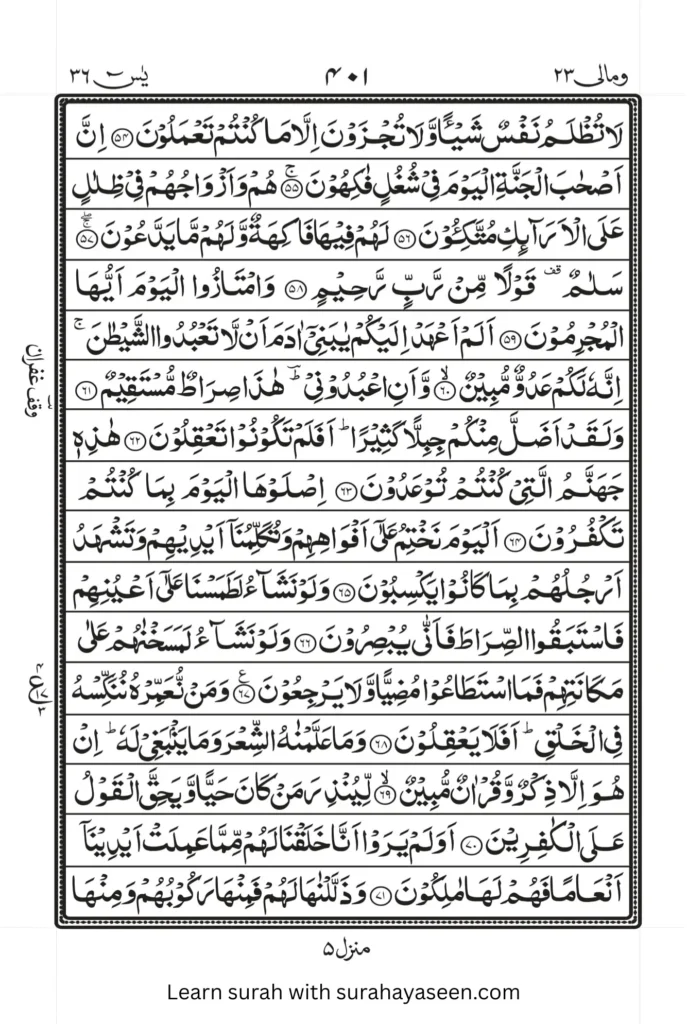 ومالی ۲۳
۴۰۱
یٰسٓ ۳۶
لَا تُظْلَمُ نَفْسٌ شَيْـًٔا وَّلَا تُجْزَوْنَ اِلَّا مَا كُنْتُمْ تَعْمَلُوْنَ ﴿۵۴﴾ اِنَّ
اَصْحٰبَ الْجَنَّةِ الْيَوْمَ فِيْ شُغُلٍ فٰكِهُوْنَ ﴿۵۵﴾ۚ هُمْ وَاَزْوَاجُهُمْ فِيْ ظِلٰلٍ
عَلَى الْاَرَآىِٕكِ مُتَّكِـُٔوْنَ ﴿۵۶﴾ لَهُمْ فِيْهَا فَاكِهَةٌ وَّلَهُمْ مَّا يَدَّعُوْنَ ﴿۵۷﴾ۚۖ
سَلٰمٌ ۫ قَوْلًا مِّنْ رَّبٍّ رَّحِيْمٍ ﴿۵۸﴾ وَامْتَازُوا الْيَوْمَ اَيُّهَا
الْمُجْرِمُوْنَ ﴿۵۹﴾ اَلَمْ اَعْهَدْ اِلَيْكُمْ يٰبَنِيْٓ اٰدَمَ اَنْ لَّا تَعْبُدُوا الشَّيْطٰنَ ۚ
اِنَّهٗ لَكُمْ عَدُوٌّ مُّبِيْنٌ ﴿۶۰﴾ۙ وَّاَنِ اعْبُدُوْنِيْ ؕؔ هٰذَا صِرَاطٌ مُّسْتَقِيْمٌ ﴿۶۱﴾
وَلَقَدْ اَضَلَّ مِنْكُمْ جِبِلًّا كَثِيْرًا ؕ اَفَلَمْ تَكُوْنُوْا تَعْقِلُوْنَ ﴿۶۲﴾ هٰذِهٖ
جَهَنَّمُ الَّتِيْ كُنْتُمْ تُوْعَدُوْنَ ﴿۶۳﴾ اِصْلَوْهَا الْيَوْمَ بِمَا كُنْتُمْ
تَكْفُرُوْنَ ﴿۶۴﴾ اَلْيَوْمَ نَخْتِمُ عَلٰٓى اَفْوَاهِهِمْ وَتُكَلِّمُنَآ اَيْدِيْهِمْ وَتَشْهَدُ
اَرْجُلُهُمْ بِمَا كَانُوْا يَكْسِبُوْنَ ﴿۶۵﴾ وَلَوْ نَشَآءُ لَطَمَسْنَا عَلٰٓى اَعْيُنِهِمْ
فَاسْتَبَقُوا الصِّرَاطَ فَاَنّٰى يُبْصِرُوْنَ ﴿۶۶﴾ وَلَوْ نَشَآءُ لَمَسَخْنٰهُمْ عَلٰى
مَكَانَتِهِمْ فَمَا اسْتَطَاعُوْا مُضِيًّا وَّلَا يَرْجِعُوْنَ ﴿۶۷﴾ۧ وَمَنْ نُّعَمِّرْهُ نُنَكِّسْهُ
فِي الْخَلْقِ ؕ اَفَلَا يَعْقِلُوْنَ ﴿۶۸﴾ وَمَا عَلَّمْنٰهُ الشِّعْرَ وَمَا يَنْۢبَغِيْ لَهٗ ؕ اِنْ
هُوَ اِلَّا ذِكْرٌ وَّقُرْاٰنٌ مُّبِيْنٌ ﴿۶۹﴾ۙ لِّيُنْذِرَ مَنْ كَانَ حَيًّا وَّيَحِقَّ الْقَوْلُ
عَلَى الْكٰفِرِيْنَ ﴿۷۰﴾ اَوَلَمْ يَرَوْا اَنَّا خَلَقْنَا لَهُمْ مِّمَّا عَمِلَتْ اَيْدِيْنَآ
اَنْعَامًا فَهُمْ لَهَا مٰلِكُوْنَ ﴿۷۱﴾ وَذَلَّلْنٰهَا لَهُمْ فَمِنْهَا رَكُوْبُهُمْ وَمِنْهَا
وقف غفران
منزل ۵
Learn surah with surahayaseen.com